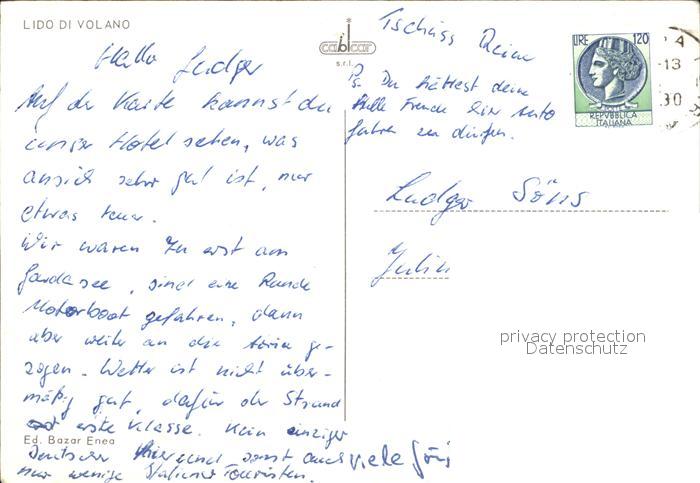 LIDO DI VOLANO
Hallo Ludger
Auf der Karte kannst du
unser Hotel sehen, was
ansich sehr gut ist, nur
etwas teuer.
Wir waren zu erst am
Gardasee, sind eine Runde
Motorboot gefahren, dann
aber weiter an die Adria ge-
zogen. Wetter ist nicht über-
mäßig gut, dafür der Strand
erste Klasse. Kein einziger
Deutscher hier und sonst auch
nur wenige Italiener Touristen.
viele Grüß
Ed. Bazar Enea
cabicar
s.r.l.
Tschüss
Ps. Du hättest deine
helle Freude hier Auto
fahren zu dürfen.
LIRE 120
REPVBBLICA
ITALIANA
A
-13
80
Ludger Söns
privacy protection
Datenschutz